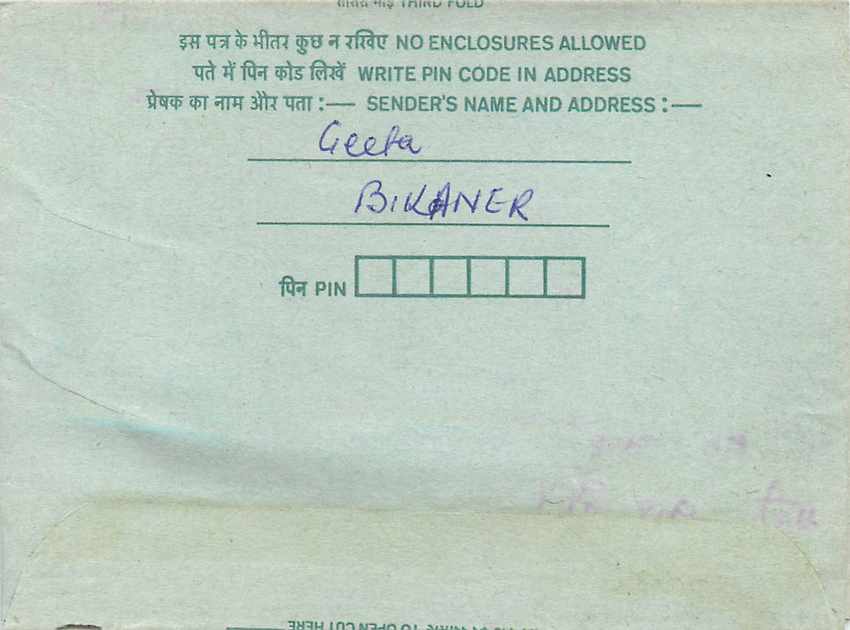 तीसरा मोड़ THIRD FOLD
इस पत्र के भीतर कुछ न रखिए NO ENCLOSURES ALLOWED
पते में पिन कोड लिखें WRITE PIN CODE IN ADDRESS
प्रेषक का नाम और पता :— SENDER'S NAME AND ADDRESS :—
Geeta
BIKANER
पिन PIN
TO OPEN CUT HERE